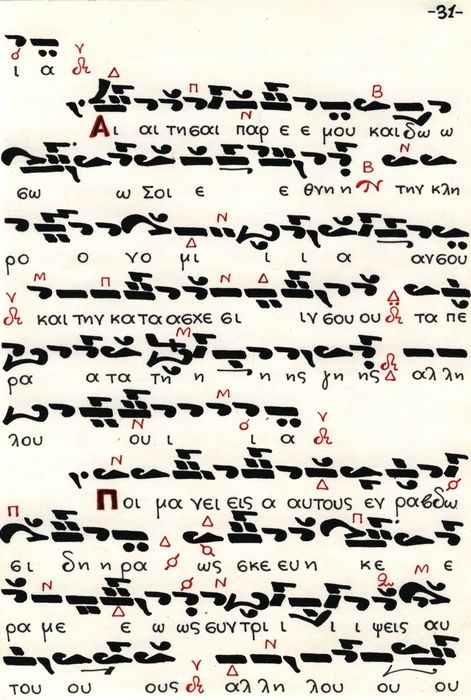 -31-
ι α
Αι αι τησαι παρ ε ε μου και δω ω
σω ω Σοι ε ε θνη η την κλη
ρο ο νο μι ι ι α αν σου
και την κα τα α σχε σι ιν σου ου τα πε
ρα α τα τη η η ης γη ης αλ λη
λου ου ι ι α
Ποι μα νει εις α αυτους εν ραβδω
σι δη η ρα ως σκε ευ η κε ε
ρα με ε ω ως συν τρι ι ι ψεις αυ
του ου ους αλ λη λου ου ου